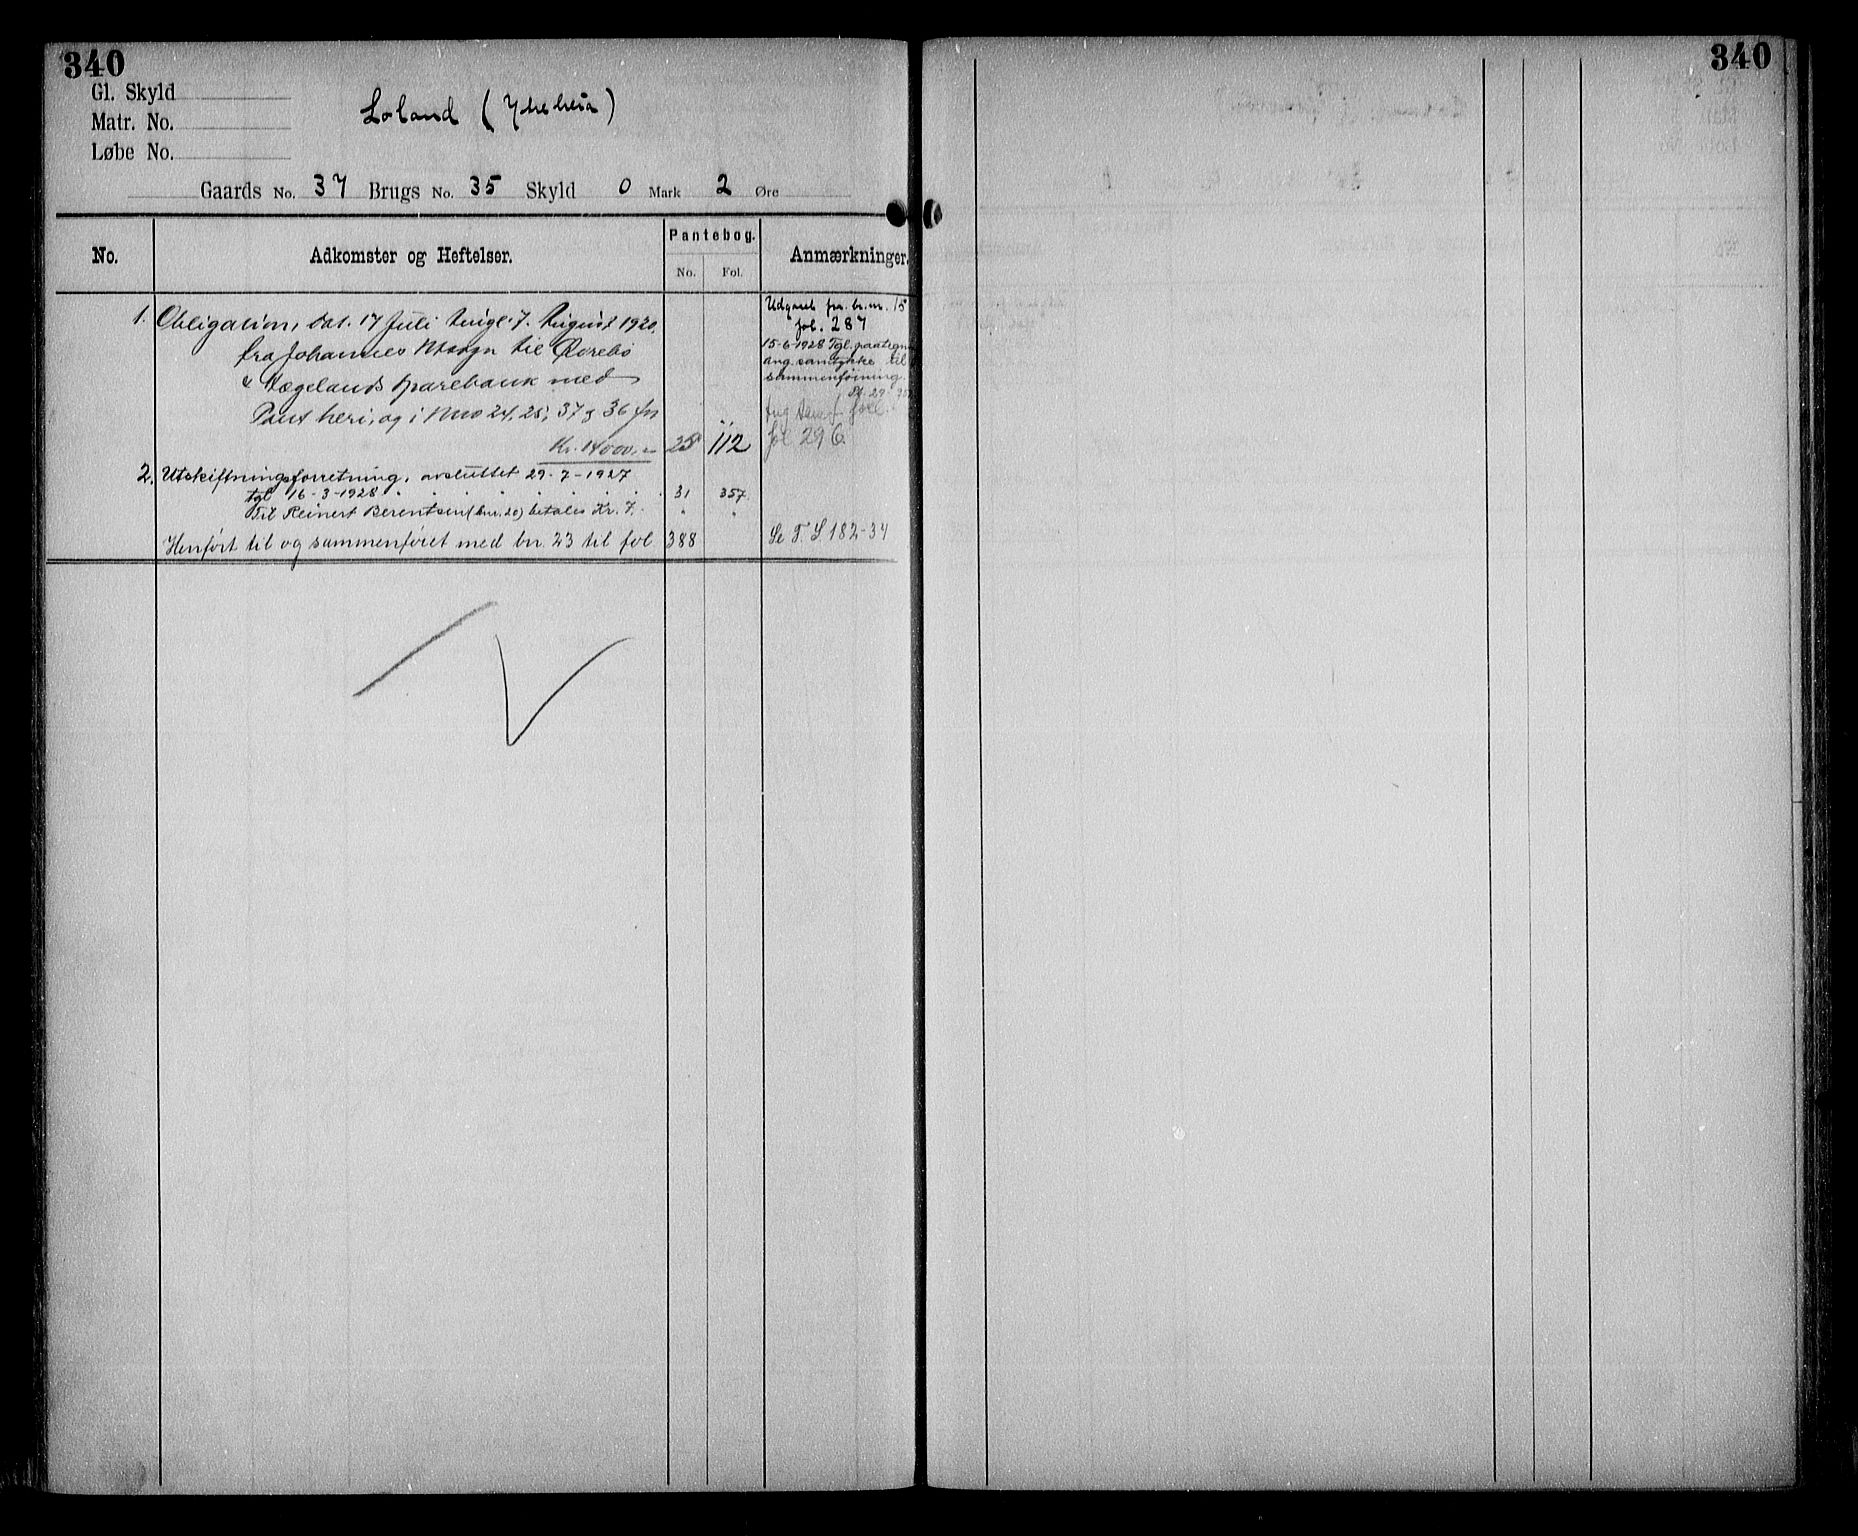 340
340
Gl. Skyld
Matr. No.
Løbe No.
Loland (
Gaards No. 37 Brugs No. 35 Skyld 0 Mark 2 Øre
No. Adkomster og Heftelser. Pantebog. Anmærkninger.
No. Fol.
Udgaaet fra br.nr. 15
fol. 287
1. Obligation, dat. 17 Juli tingl. 7. August 1920.
15-6-1928 Tgl. paategn
fra Johannes til Øvrebø
ang. samtykke til
sammenføining.
& Hægelands Sparebank med
Pant heri, og i 24, 25, 37 & 36 for
Kr. 14000,- 25 112
fol 296
2. Utskiftningsforretning, avsluttet 29-7-1927
tgl 16-3-1928 31 357.
Til Reinert Berentsen (bnr. 20) betales Kr. 7.- " "
Henført til og sammenføiet med bn. 23 til fol 388 Se T.S 182-34